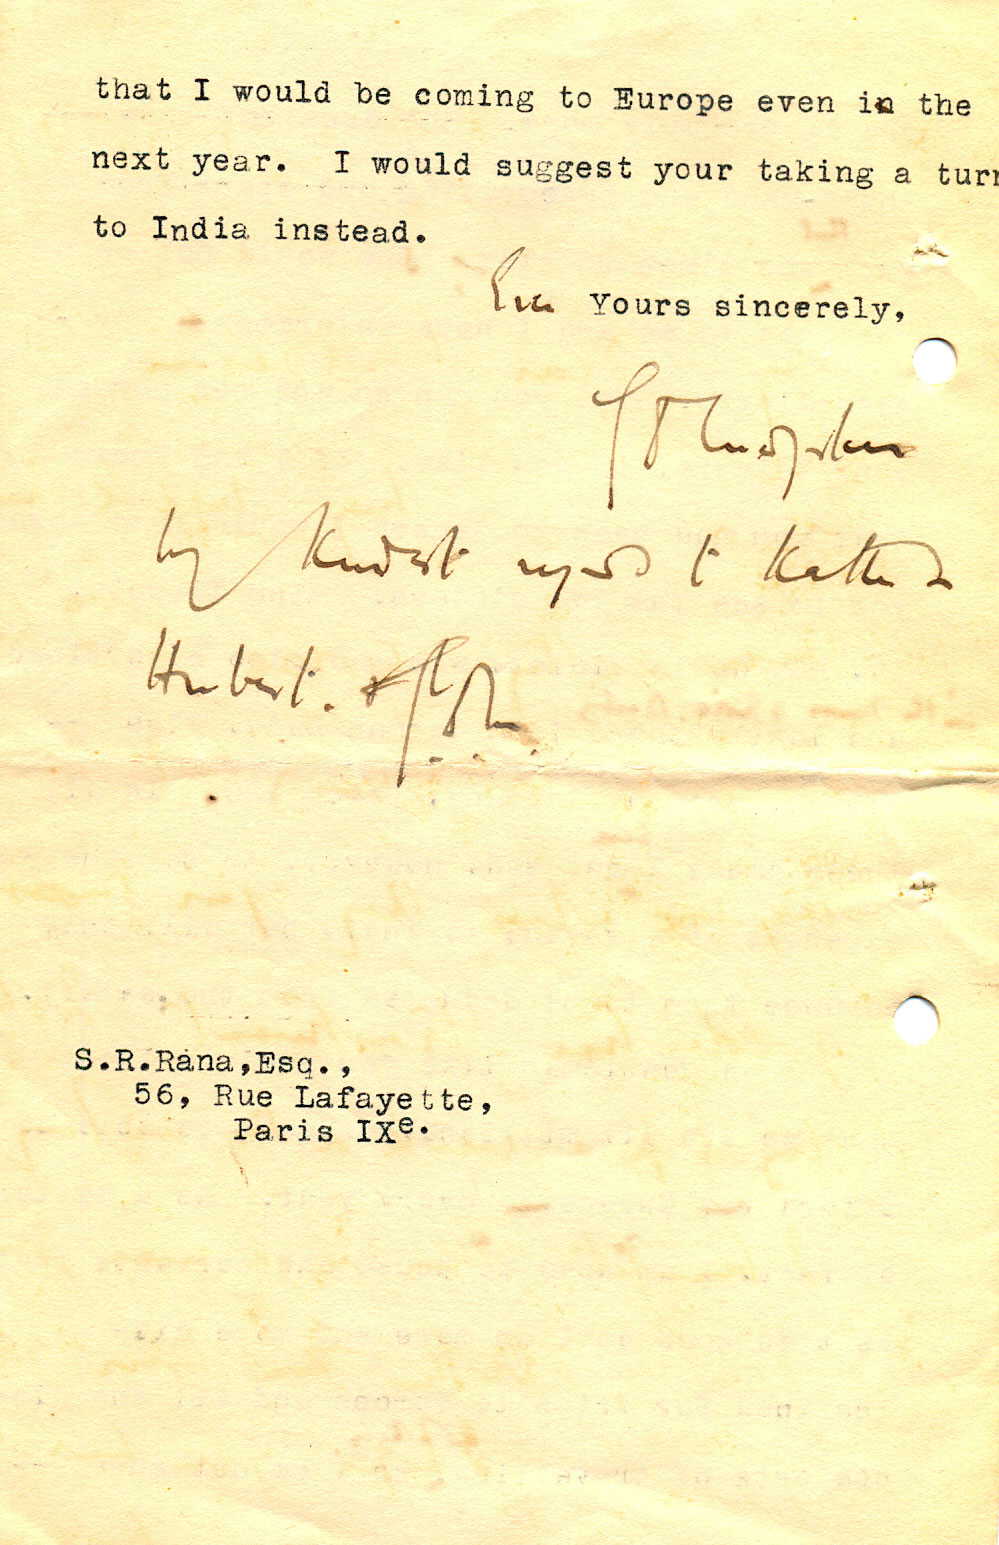 that I would be coming to Europe even in the
next year. I would suggest your taking a turn
to India instead.
Ever Yours sincerely,
My kindest regards to
Hubert.
S.R.Rana,Esq.,
56, Rue Lafayette,
Paris IXe.